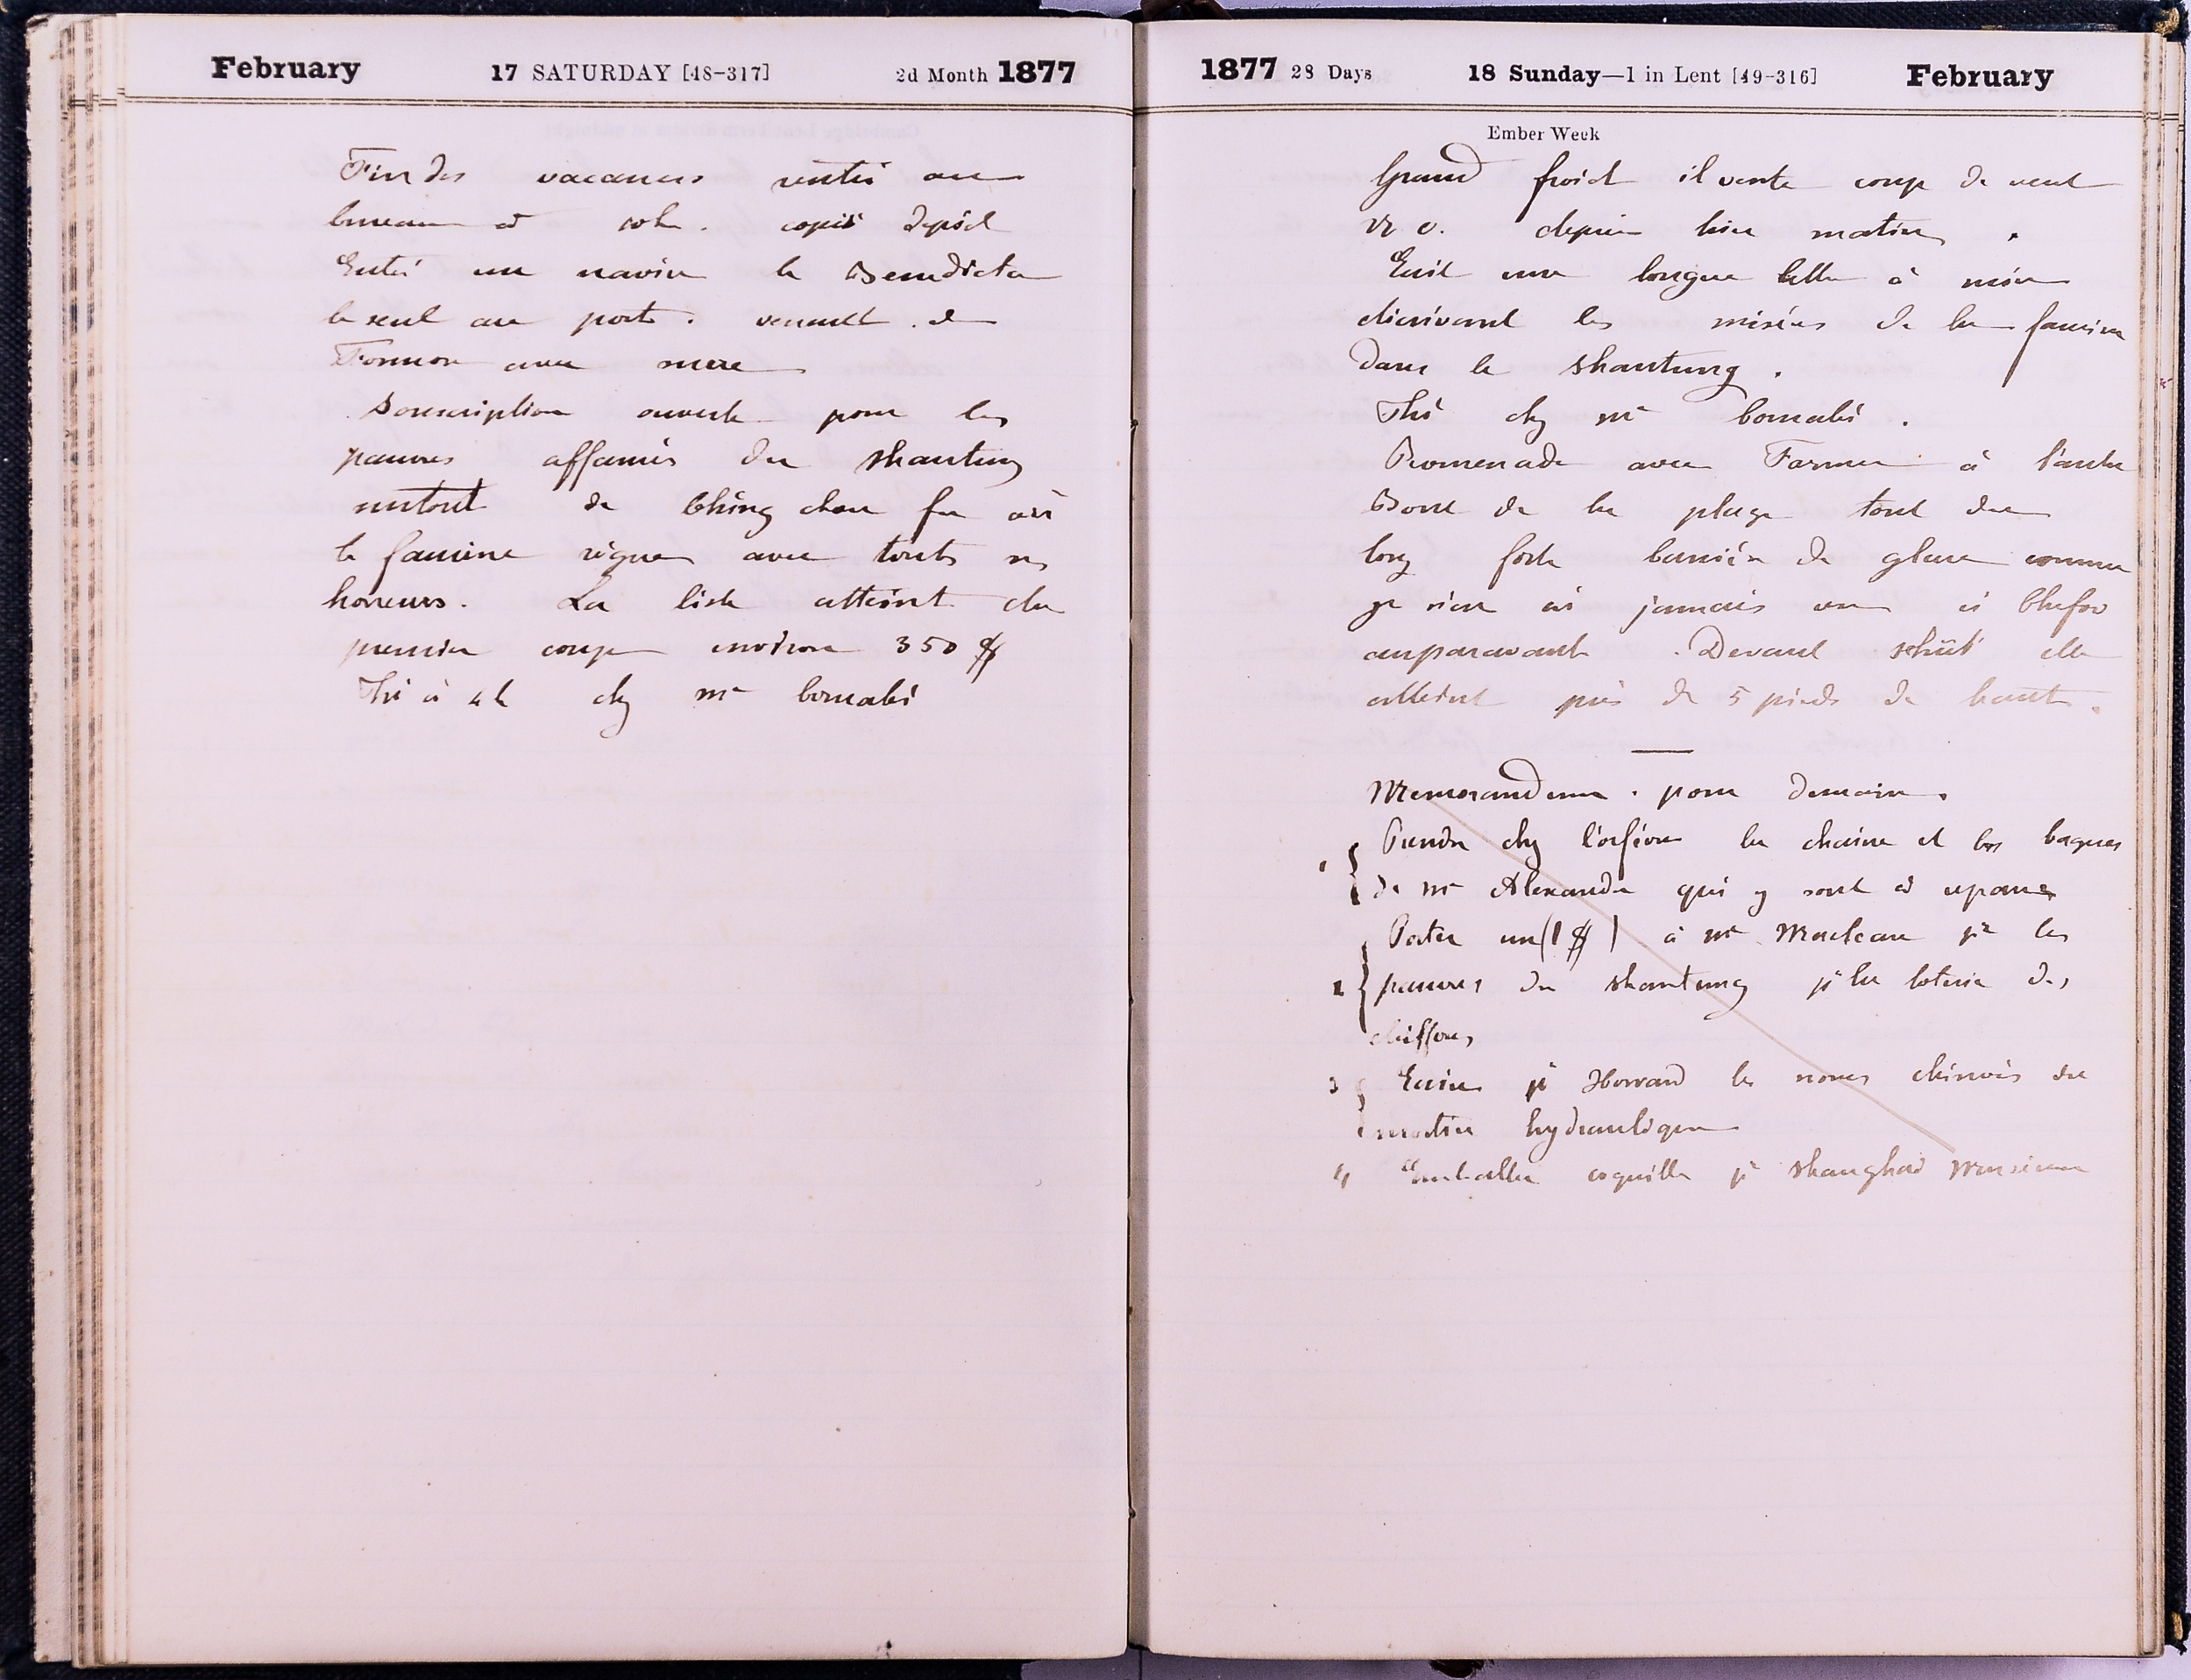 February 17 SATURDAY [48-317] 2d Month 1877
Fin des vacances rentré au
bureau à 10 h. copié dépêch
Entré un navire le Benedicta
le seul au port. venant de
Formose avec sucre
Souscription ouverte pour les
pauvres affamés du Shantung
surtout de Ching chou fu où
la famine règne avec toutes ses
horreurs. La liste atteint du
premier coup environ 350 $
Thé à 4 h chez Mr Cornabé
1877 28 Days 18 Sunday—1 in Lent [49-316] February
Ember Week
Grand froid il vente coup de vent
N O. depuis hier matin.
Ecrit une longue lettre à mère
décrivant les misères de la famine
dans le Shantung.
Thé chez Mr Cornabé.
Promenade avec Farmer à l'autre
Bout de la plage tout du
long forte barrière de glace comme
je n'en ai jamais vu à Chefoo
auparavant. Devant elle
atteint près de 5 pieds de haut.
Memorandum. pour demain.
1 Prendre chez l'orfèvre la chaine et les bagues
de Mr Alexandre qui y sont à réparer
Porter un (1 $) à Mr Maclean pr les
2 pauvres du Shantung pr la loterie des
chiffons
3 Ecrire pr Howard les noms chinois du
mortier hydraulique
4 Emballer coquilles pr Shanghai Museum